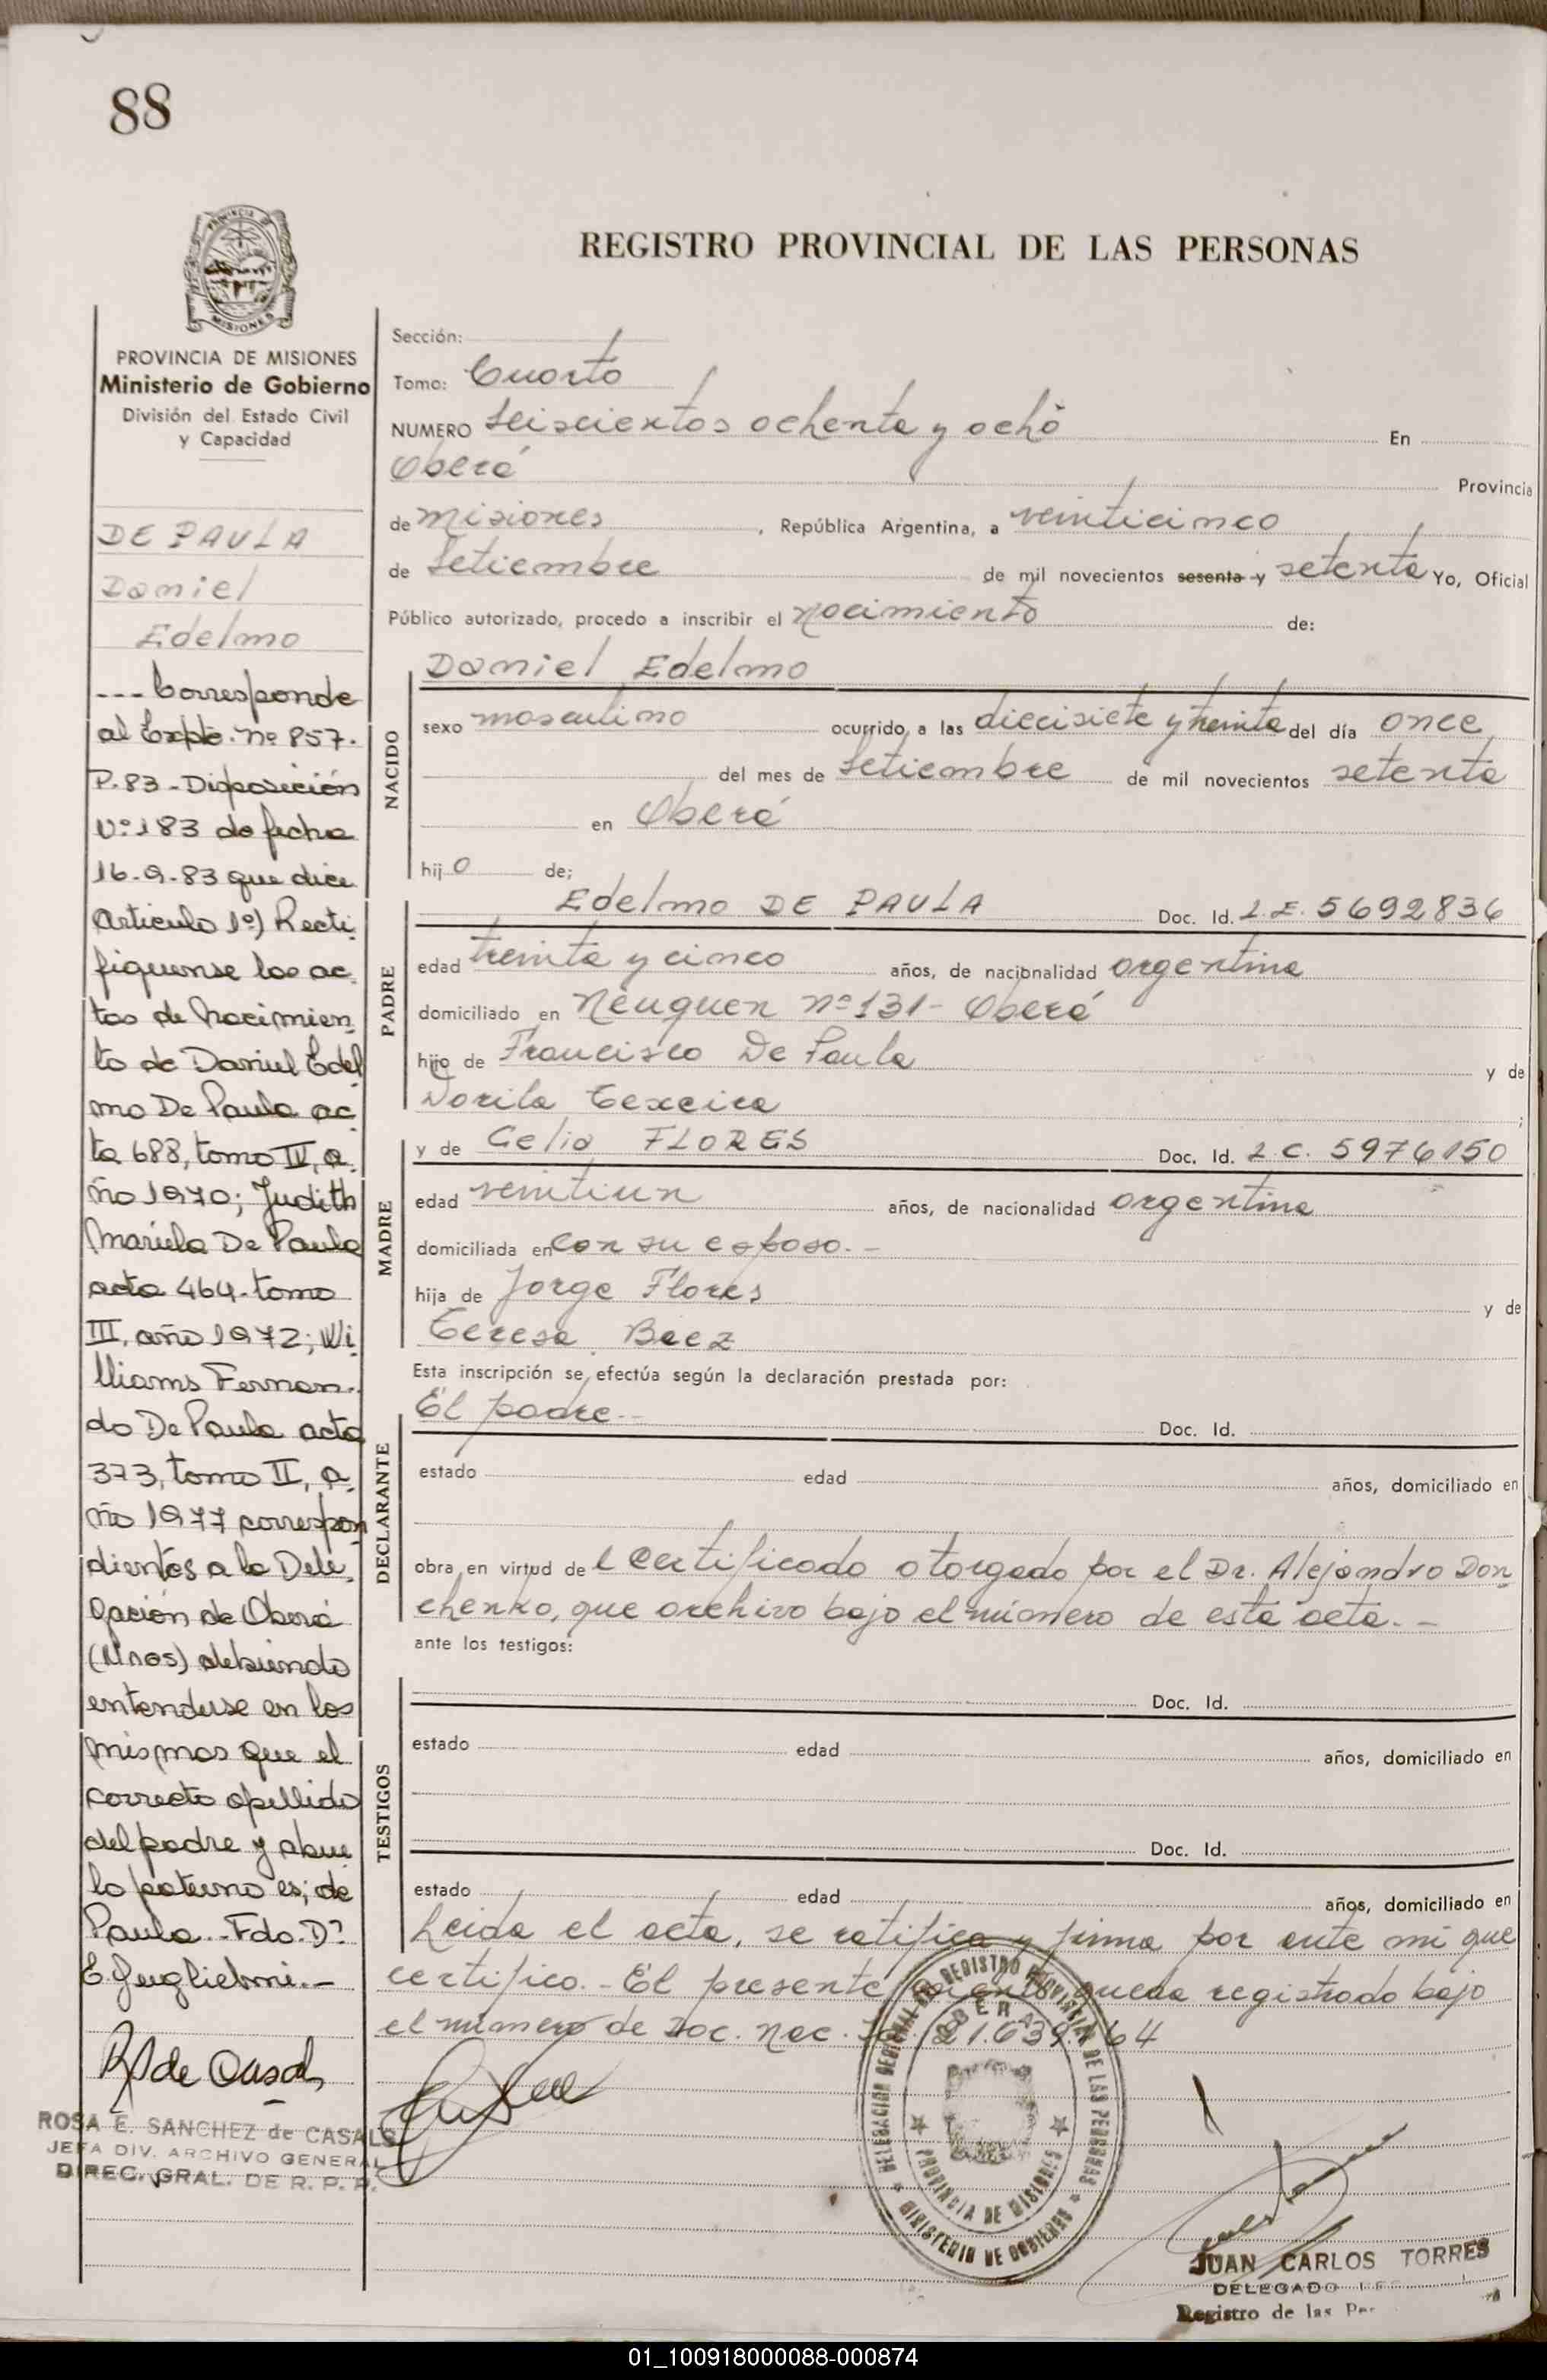 88
REGISTRO PROVINCIAL DE LAS PERSONAS
PROVINCIA DE MISIONES
Ministerio de Gobierno
División del Estado Civil
y Capacidad
DE PAULA
Daniel
Edelmo
--- Corresponde
al Expte. nº 857.
P. 83 - Disposición
Nº 183 de fecha
16-9-83 que dice
Artículo 1º) Recti-
fíquense las ac-
tas de Nacimien-
to de Daniel Edel
mo De Paula ac-
ta 688, tomo IV, a-
ño 1970; Judith
Mariela De Paula
acta 464 tomo
III, año 1972; Wi-
lliams Fernan-
do De Paula acta
373, tomo II, a-
ño 1977 correspon
dientes a la Dele-
gación de Oberá
(Mnes) debiendo
entenderse en las
mismas que el
correcto apellido
del padre y abue-
lo paterno es; de
Paula.- Fdo. Dº
E. Guglielmi.-
ROSA E. SANCHEZ de CASALS
JEFA DIV. ARCHIVO GENERAL
DIREC. GRAL. DE R. P. P.
Sección:
Tomo: Cuarto
NUMERO Seiscientos ochenta y ocho En
Oberá Provincia
de Misiones, República Argentina, a veinticinco
de Setiembre de mil novecientos sesenta y setenta Yo, Oficial
Público autorizado, procedo a inscribir el nacimiento de:
NACIDO
Daniel Edelmo
sexo masculino ocurrido a las diecisiete y treinta del día once
del mes de Setiembre de mil novecientos setenta
en Oberá
hijo de;
PADRE
Edelmo DE PAULA Doc. Id. L.E. 5692836
edad treinta y cinco años, de nacionalidad argentina
domiciliado en Neuquen nº 131- Oberá
hijo de Francisco De Paula y de
Dorila Texeira ;
MADRE
y de Celia FLORES Doc. Id. L.C. 5976150
edad veintiun años, de nacionalidad argentina
domiciliada en con su esposo.-
hija de Jorge Flores y de
Teresa Baez
Esta inscripción se efectúa según la declaración prestada por:
DECLARANTE
El padre.- Doc. Id.
estado edad años, domiciliado en
obra en virtud del certificado otorgado por el Dr. Alejandro Don
chenko, que archivo bajo el número de esta acta.-
ante los testigos:
TESTIGOS
Doc. Id.
estado edad años, domiciliado en
Doc. Id.
estado edad años, domiciliado en
Leida el acta, se ratifica y firma por ante mi que
certifico.- El presente queda registrado bajo
el número de Doc. Nac. 21.639. 64
DELEGACION REGIONAL DEL REGISTRO PROVINCIAL DE LAS PERSONAS
OBERA
PROVINCIA DE MISIONES
MINISTERIO DE GOBIERNO
JUAN CARLOS TORRES
DELEGADO
Registro de las Per
01_100918000088-000874